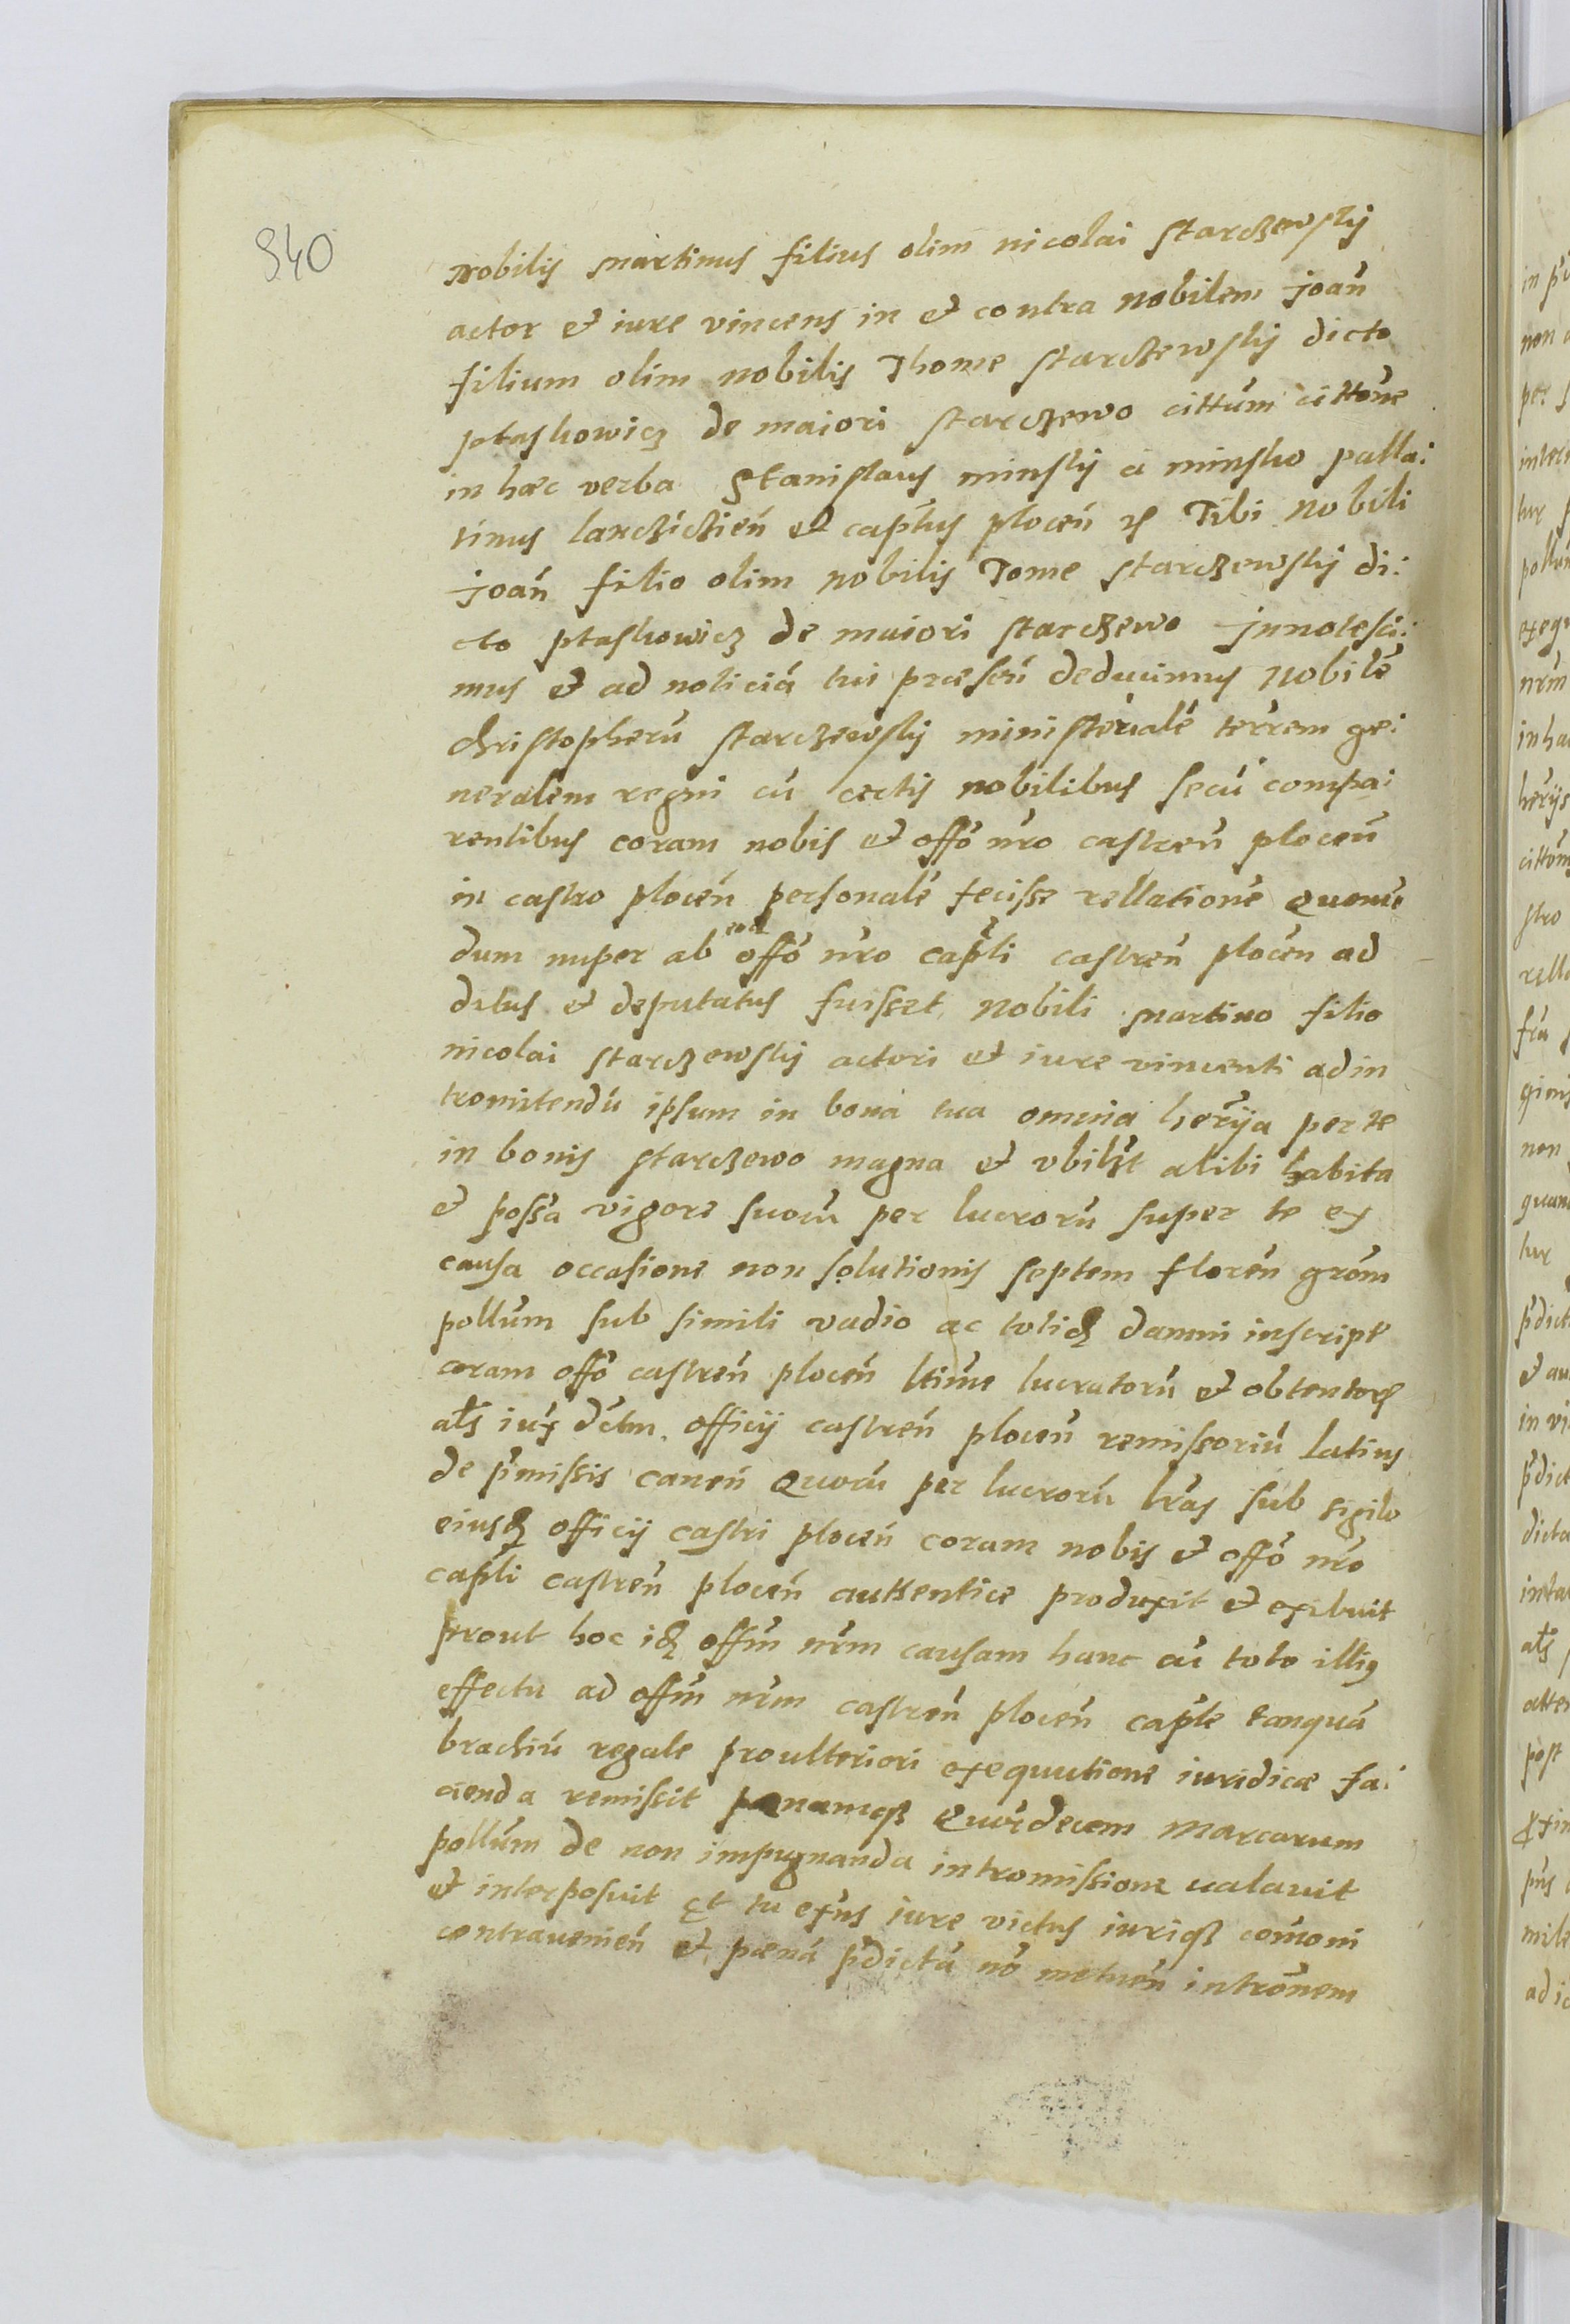 940
Nobilis Martinus filius olim Nicolai Starczewsky
actor et iure vincens in et contra nobilem Joań
filium olim nobilis Thome Starczewsky dicto
ptaskowicz de maiori Starczewo cittum cittone
in hæc verba Stanislaus Minsky a Minsko palla:
tinus lanczicień et captus plocen Tibi Nobili
Joań filio olim nobilis Tome Starczewsky di:
cto ptaskowicz de maiori Starczewo Jnnotesci:
mus et ad noticiá tui deducimus Nobilé
Christopherú Starczewsky ministerialé terrem ge:
neralem regni cú certis nobilibus secú compa:
rentibus coram nobis et offo nro castreń ploceń
in castro ploceń personalé fecisse rellationé Quem
dum nuper ab eod offo nro capli castreń ploceń ad
ditus et deputatus fuisset Nobili Martino filio
Nicolai Starczewsky actori et iure vincenti ad in
tromittendú ipsum in bona tua omnia herija per te
in bonis Starczewo magna et vbilzt alibi habita
et possa vigore suorú per lucrorú super te ex
causa occasione non solutionis septem floreń grom
pollum sub simili vadio ac totidz damni inscript
coram offo castreń ploceń ltime lucratorú et obtentorz
als iux dctm officij castreń ploceń remissoriú latius
de pmissis caneń Quorú per lucrorú lras sub sigilo
eiusdz officij castri ploceń coram nobis et offo nro
capli castreń ploceń authentice produxit et exibuit
prout hoc idz offm nrm causam hanc cú toto illig
effectu ad offm nrm castreń ploceń caple tanquá
brachiú regale pro ulteriori exequutione iuridica fa:
cienda remissit pænamqz Quindecem Marcarum
pollum de non impugnanda intromissione valauit
et interposuit Et tu exńs iure victus iuriqz comoni
contravenień et pæná pdictá nó metueń intronem